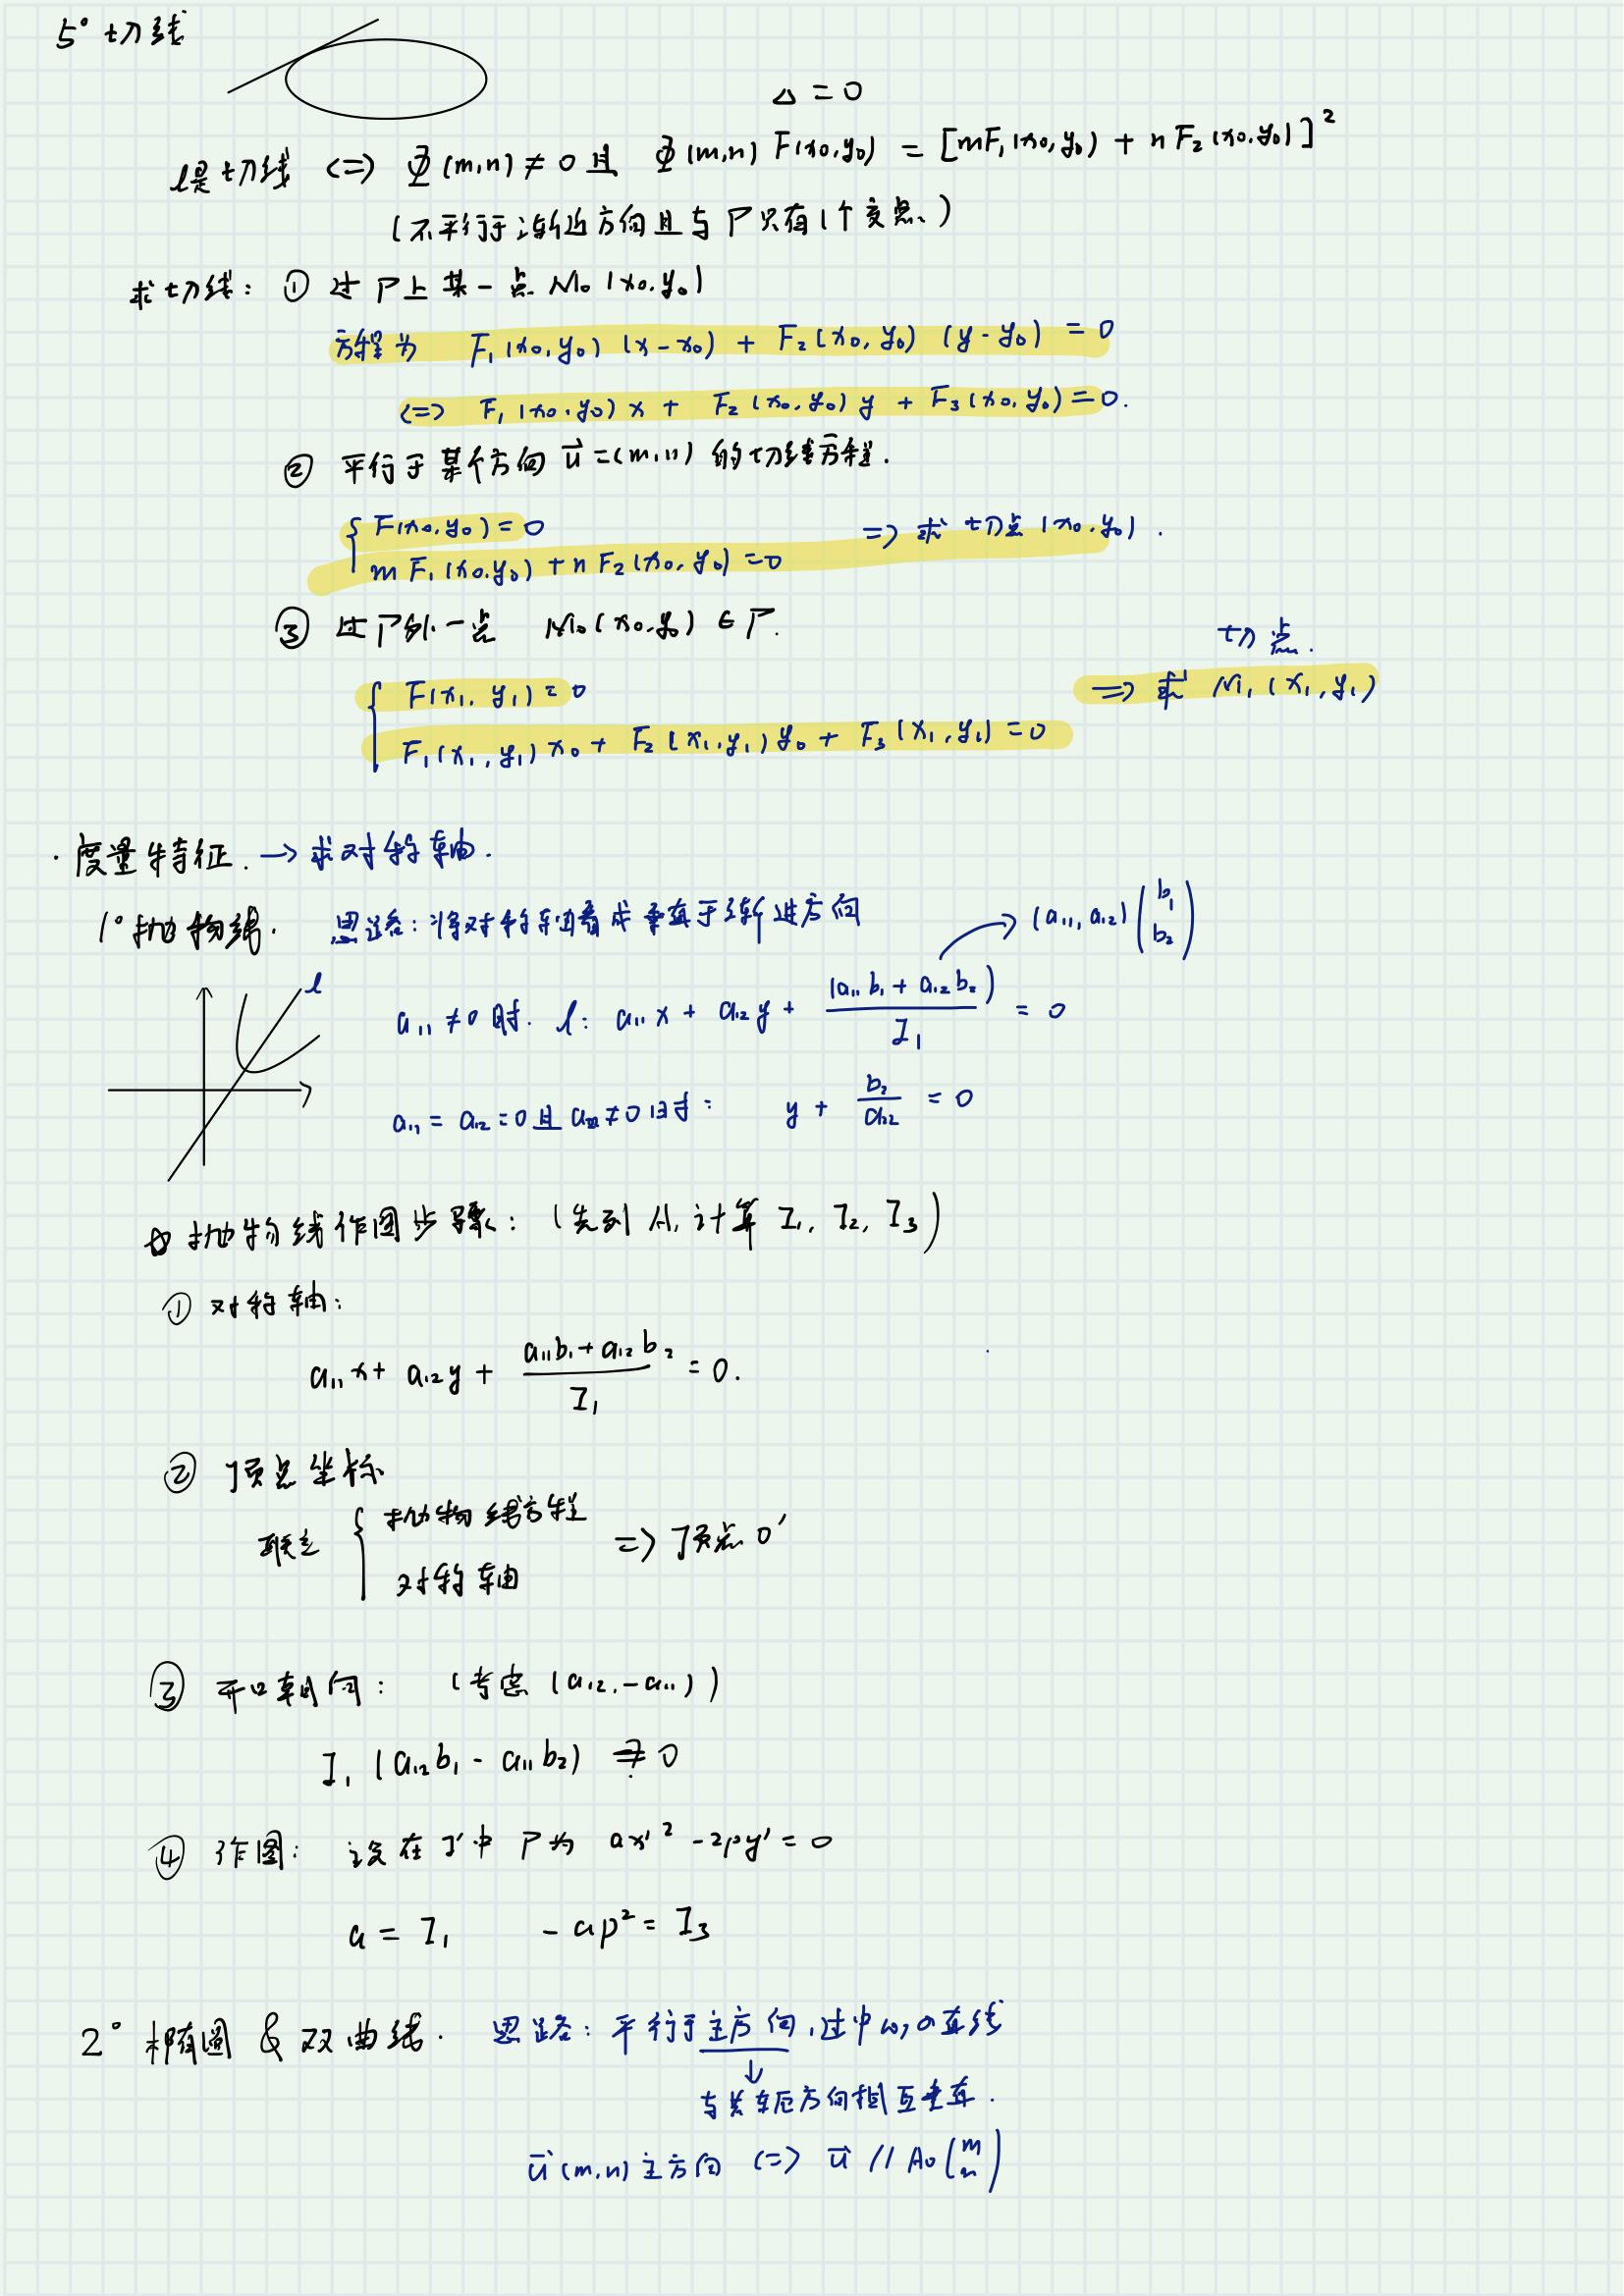 5° 切线
△ = 0
l是切线 <=> Φ(m,n) ≠ 0 且 Φ(m,n) F(x₀,y₀) = [mF₁(x₀,y₀) + nF₂(x₀,y₀)]²
(不平行于渐近方向且与Γ只有1个交点)
求切线: ① 过Γ上某一点 M₀(x₀,y₀)
方程为 F₁(x₀,y₀)(x-x₀) + F₂(x₀,y₀)(y-y₀) = 0
<=> F₁(x₀,y₀)x + F₂(x₀,y₀)y + F₃(x₀,y₀) = 0.
② 平行于某个方向 u⃗=(m,n) 的切线方程.
{ F(x₀,y₀) = 0
mF₁(x₀,y₀) + nF₂(x₀,y₀) = 0 => 求切点(x₀,y₀).
③ 过Γ外一点 M₀(x₀,y₀) ∈ Γ.
切点.
{ F(x₁,y₁) = 0 => 求 M₁(x₁,y₁)
F₁(x₁,y₁)x₀ + F₂(x₁,y₁)y₀ + F₃(x₁,y₁) = 0
· 度量特征. → 求对称轴.
1° 抛物线. 思路: 将对称轴看成垂直于渐进方向 → (a₁₁, a₁₂)(b₁ b₂)
l
a₁₁ ≠ 0 时. l: a₁₁x + a₁₂y + (a₁₁b₁ + a₁₂b₂)/I₁ = 0
a₁₁ = a₁₂ = 0 且 a₂₂ ≠ 0 时: y + b₂/a₂₂ = 0
☆ 抛物线作图步骤: (先列A, 计算 I₁, I₂, I₃)
① 对称轴:
a₁₁x + a₁₂y + (a₁₁b₁ + a₁₂b₂)/I₁ = 0.
② 顶点坐标
联立 { 抛物线方程 => 顶点 O'
对称轴
③ 开口朝向: (考虑 (a₁₂, -a₁₁))
I₁(a₁₂b₁ - a₁₁b₂) 0
④ 作图: 设在 I' 中 Γ为 ax'² - 2py' = 0
a = I₁ -ap² = I₃
2° 椭圆 & 双曲线. 思路: 平行于主方向, 过中心的直线
↓
与共轭方向相互垂直.
u⃗(m,n) 主方向 <=> u⃗ // A₀(m n)